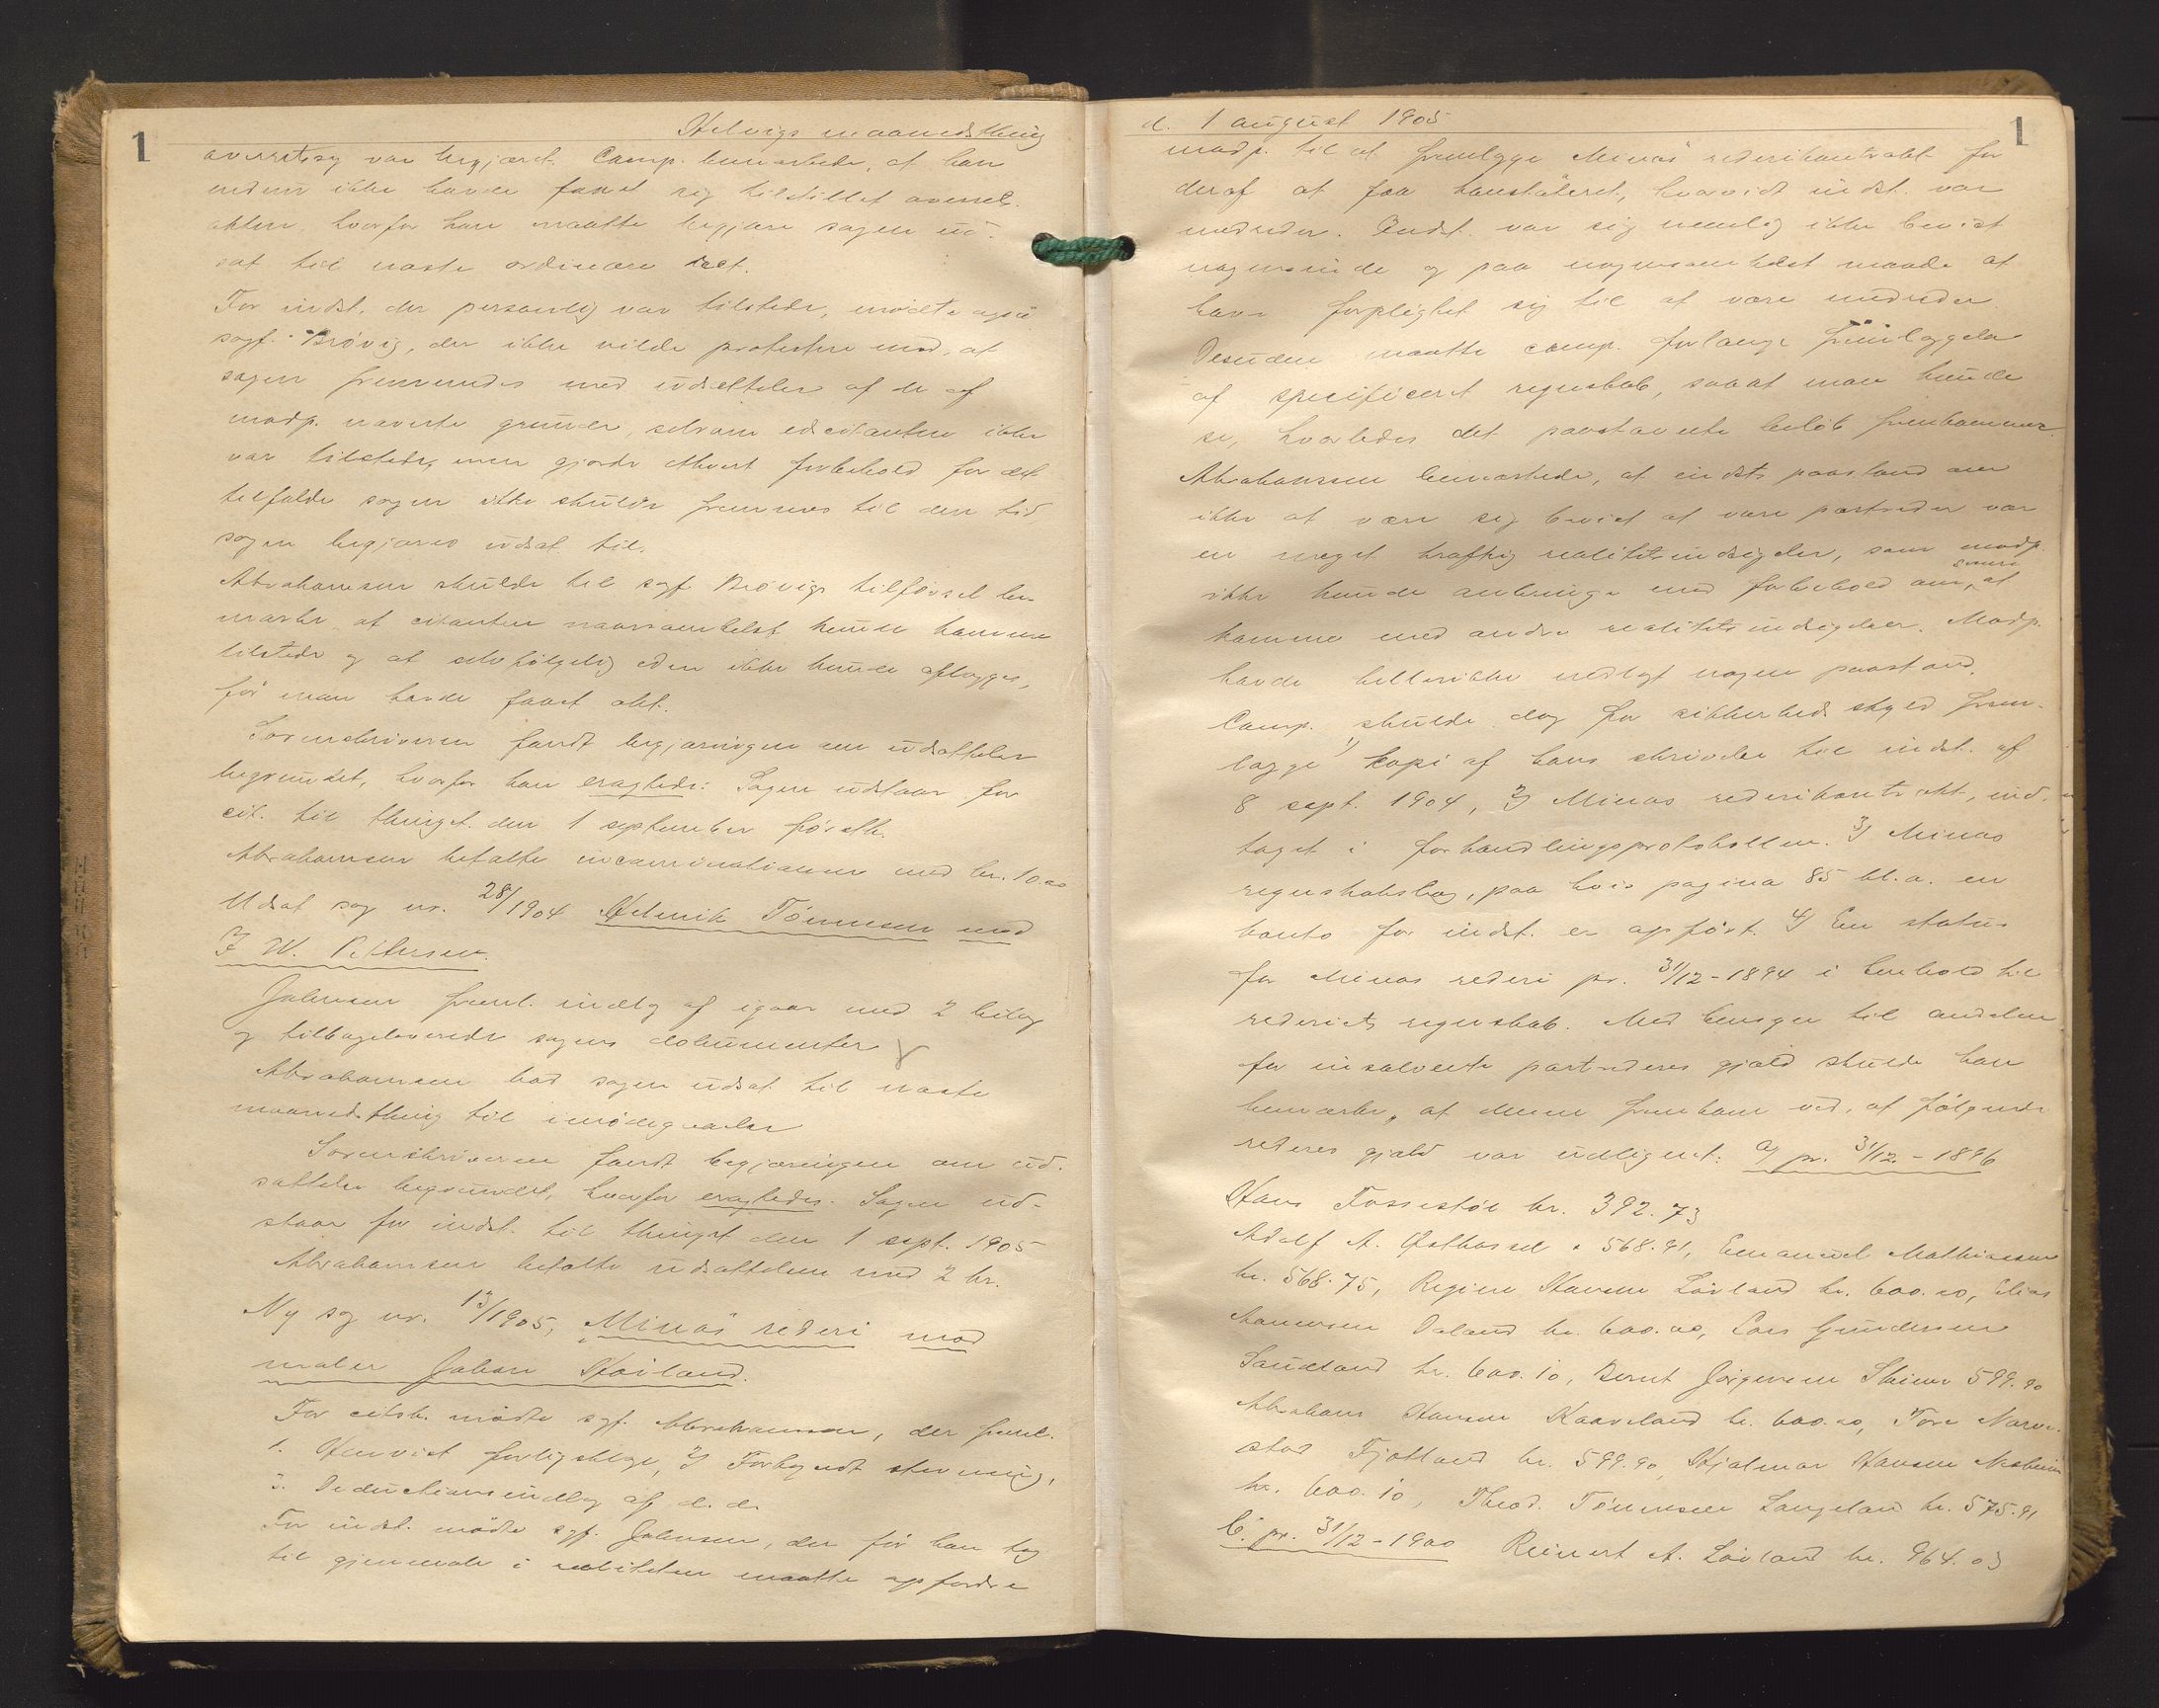 1
Helvigs maanedsthing
aversertesag var begjæret. Comp. bemærkede, at han
endnu ikke havde faaet sig tilstillet averset.
akten, hvorfor han maatte begjære sagen ud-
sat til næste ordinære ret.
For indst. der personlig var tilstede, mødte også
sagf. Brøvig, der ikke vilde protestere mod, at
sagen fremmedes med udsættelse af de af
modp. nævnte grunde, selvom edcitanten ikke
var tilstede, men gjorde ethvert forbehold for det
tilfælde sagen ikke skulde fremmes til den tid
sagen begjæres udsat til.
Abrahamsen skulde til sagf. Brøvigs tilførsel be-
mærke, at citanten naarsomhelst kunde komme
tilstede og at selvfølgelig eden ikke kunde aflægges,
før man havde faaet akt.
Sorenskriveren fandt begjæringen om udsættelse
begrundet, hvorfor han eragtede: Sagen udstaar for
cit. til thinget den 1 september førstk.
Abrahamsen betalte incaminationen med kr. 10.00
Udsat sag nr. 28/1904 Helmik Tønnesen mod
F W. Pettersen.
Johnsen freml. indlæg af igaar med 2 bilag
og tilbageleverede sagens dokumenter
Abrahamsen bad sagen udsat til næste
maanedsthing til imødegaaelse
Sorenskriveren fandt begjæringen om ud-
sættelse begrundet, hvorfor eragtedes: Sagen ud-
staar for indst. til thinget den 1 sept. 1905
Abrahamsen betalte udsættelsen med 2 kr.
Ny sag nr. 13/1905, "Minos" rederi mod
maler Johan Høiland.
For citsk. mødte sgf. Abrahamsen, der freml.
1. Henvist forligsklage, 2) Forkyndt stevning,
3. Deduktionsindlæg af d. d.
For indst. mødte sgf. Johnsen, der før han tog
til gjenmæle i realiteten maatte opfordre
d. 1 august 1905
1
modp. til at fremlægge "Minos" rederikontrakt for
deraf at faa konstateret, hvorvidt indst. var
medreder. Indst. var sig nemlig ikke bevist
nogensinde og paa nogensomhelst maade at
have forpligtet sig til at være medreder.
Desuden maatte comp. forlange fremlæggelse
af specificeret regnskab, saaat man kunde
se, hvorledes det paastævnte beløb fremkommer.
Abrahamsen bemærkede, at indsts paastand om
ikke at være sig bevist at være partreder var
en meget kraftig realitetsindsigelse, som modp.
ikke kunde anbringe med forbehold om senere at
komme med andre realitetsindsigelser. Modp.
havde hellerikke nedlagt nogen paastand.
Comp. skulde dog for sikkerheds skyld frem-
lægge 1) kopi af hans skrivelse til indst. af
8 sept. 1904, 2) Minos rederikontrakt, ind-
taget i forhandlingsprotokollen. 3) Minos
regnskabsbog, paa hvis pagina 85 bl.a. en
konto for indst. er opført. 4) En status
for Minos rederi pr. 31/12-1894 i henhold til
rederiets regnskab. Med hensyn til andelen
for insolvente partrederes gjæld skulde han
bemærke, at denne fremkom ved, at følgende
rederes gjæld var udlignet: a) pr. 31/12.-1896
Hans Fossestøl kr. 392.73
Adolf A. Østhassel " 568.91, Emanuel Mathiassen
kr. 568.75, Regine Hansen Løvland kr. 600.00, Elias
Aanensen Øeland kr. 600.00, Lars Gundersen
Sandland kr. 600.10, Bernt Jørgensen Skeime 599.90
Abraham Hansen Kaaveland kr. 600.00, Tore Narve-
stad Fjotland kr. 599.90, Hjalmar Hansen Nesheim
kr. 600.10, Theod. Tønnesen Langeland kr. 575.91
b. pr. 31/12-1900 Reinert A. Løvland kr. 964.03